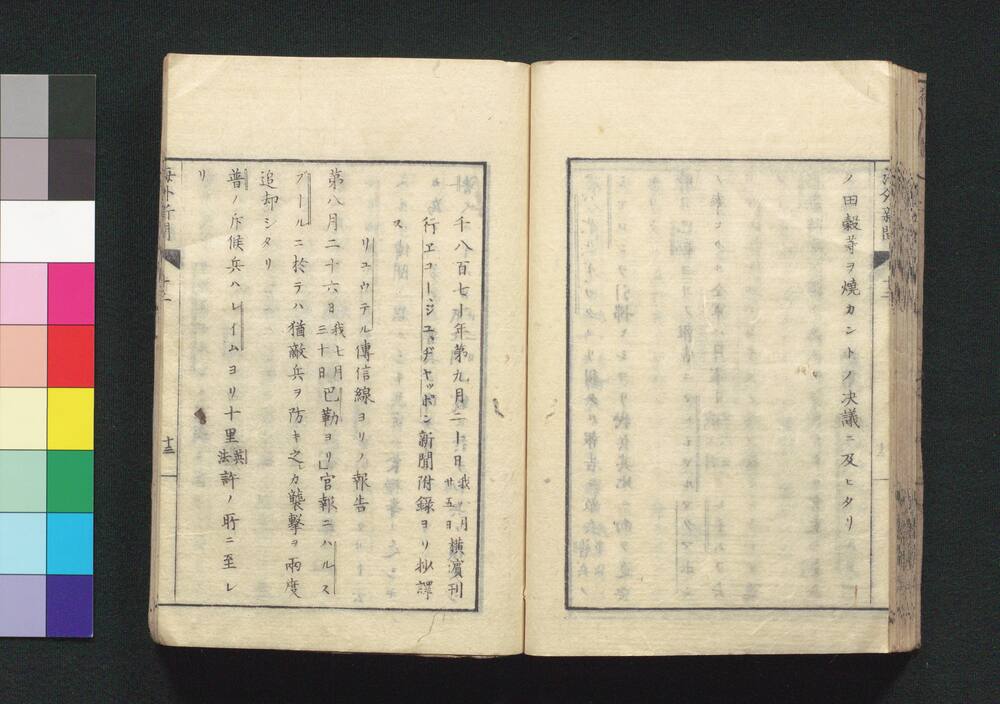 ノ田穀等ヲ燒カントノ決議ニ及ヒタリ
千八百七十年第九月二十日我八月廿五日横濱刊
行エコージユ、ヂヤツポン新聞附録ヨリ抄譯
ス
リユウテル傳信線ヨリノ報告
第八月二十六日我七月三十日巴勒ヨリ官報ニハルス
ブールニ於テハ猶敵兵ヲ防キ之カ襲撃ヲ兩度
追却シタリ
普ノ斥候兵ハレイムヨリ十里英法許ノ所ニ至レ
リ
海外新聞
十三